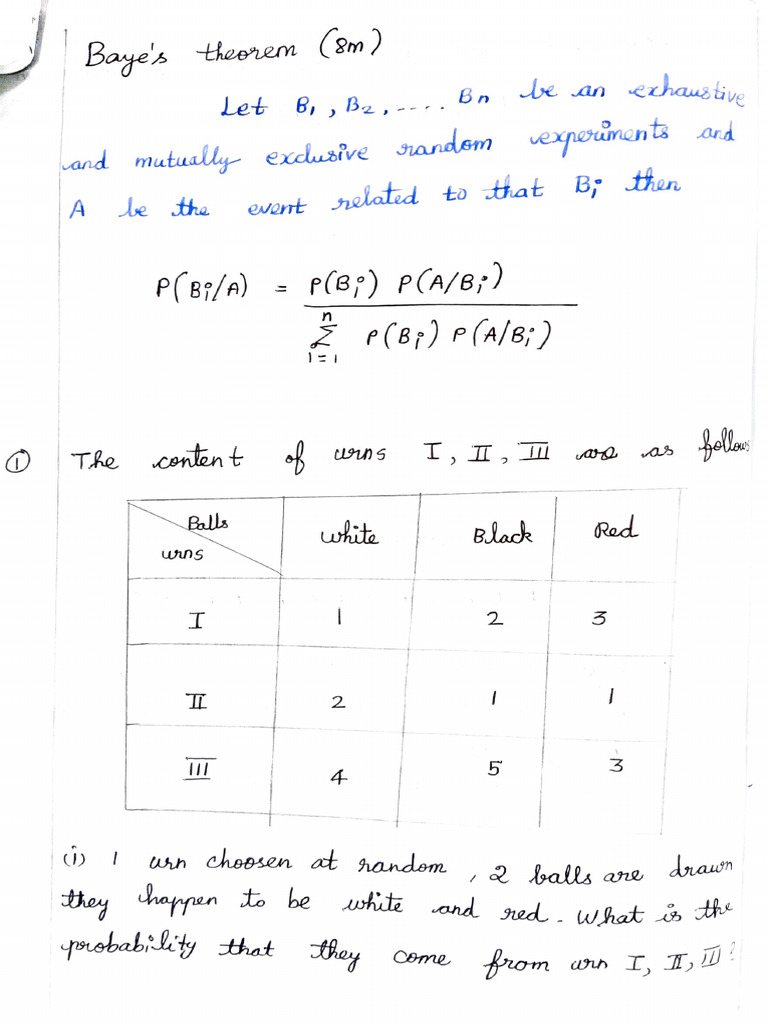 Baye's theorem (8m)
Let B₁, B₂, ..... Bn be an exhaustive
and mutually exclusive random experiments and
A be the event related to that Bi then
P(Bi/A) = P(Bi) P(A/Bi)
n
Σ P(Bi) P(A/Bi)
i=1
① The content of urns I, II, III are as follows
Balls
urns
White Black Red
I 1 2 3
II 2 1 1
III 4 5 3
(i) 1 urn choosen at random, 2 balls are drawn
they happen to be white and red. What is the
probability that they come from urn I, II, III?